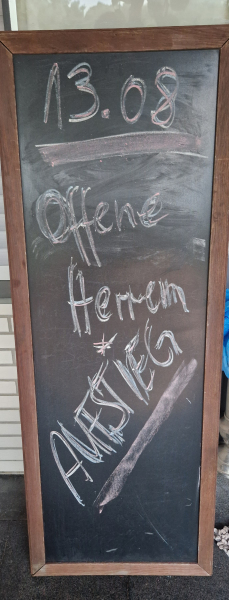 13.08
Offene
Herren
*